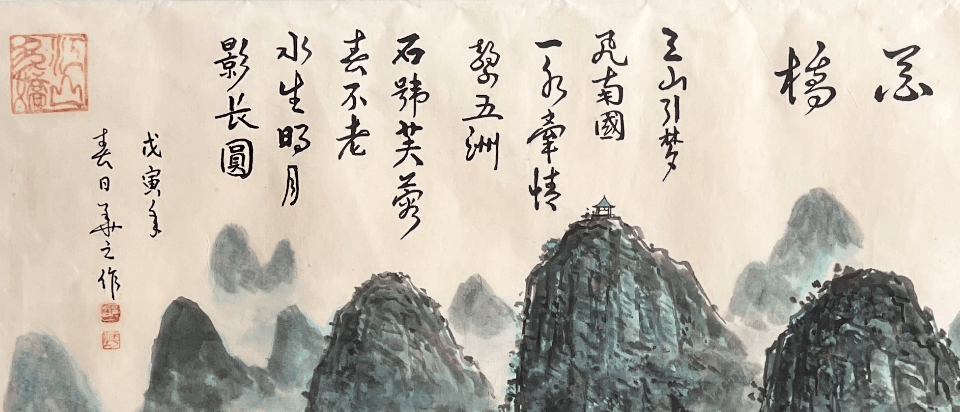 花橋
三山引梦
飛南國
一水牽情
繫五洲
石號芙蓉
春不老
水生明月
影長圓
戊寅年
春日華之作
江山
多嬌